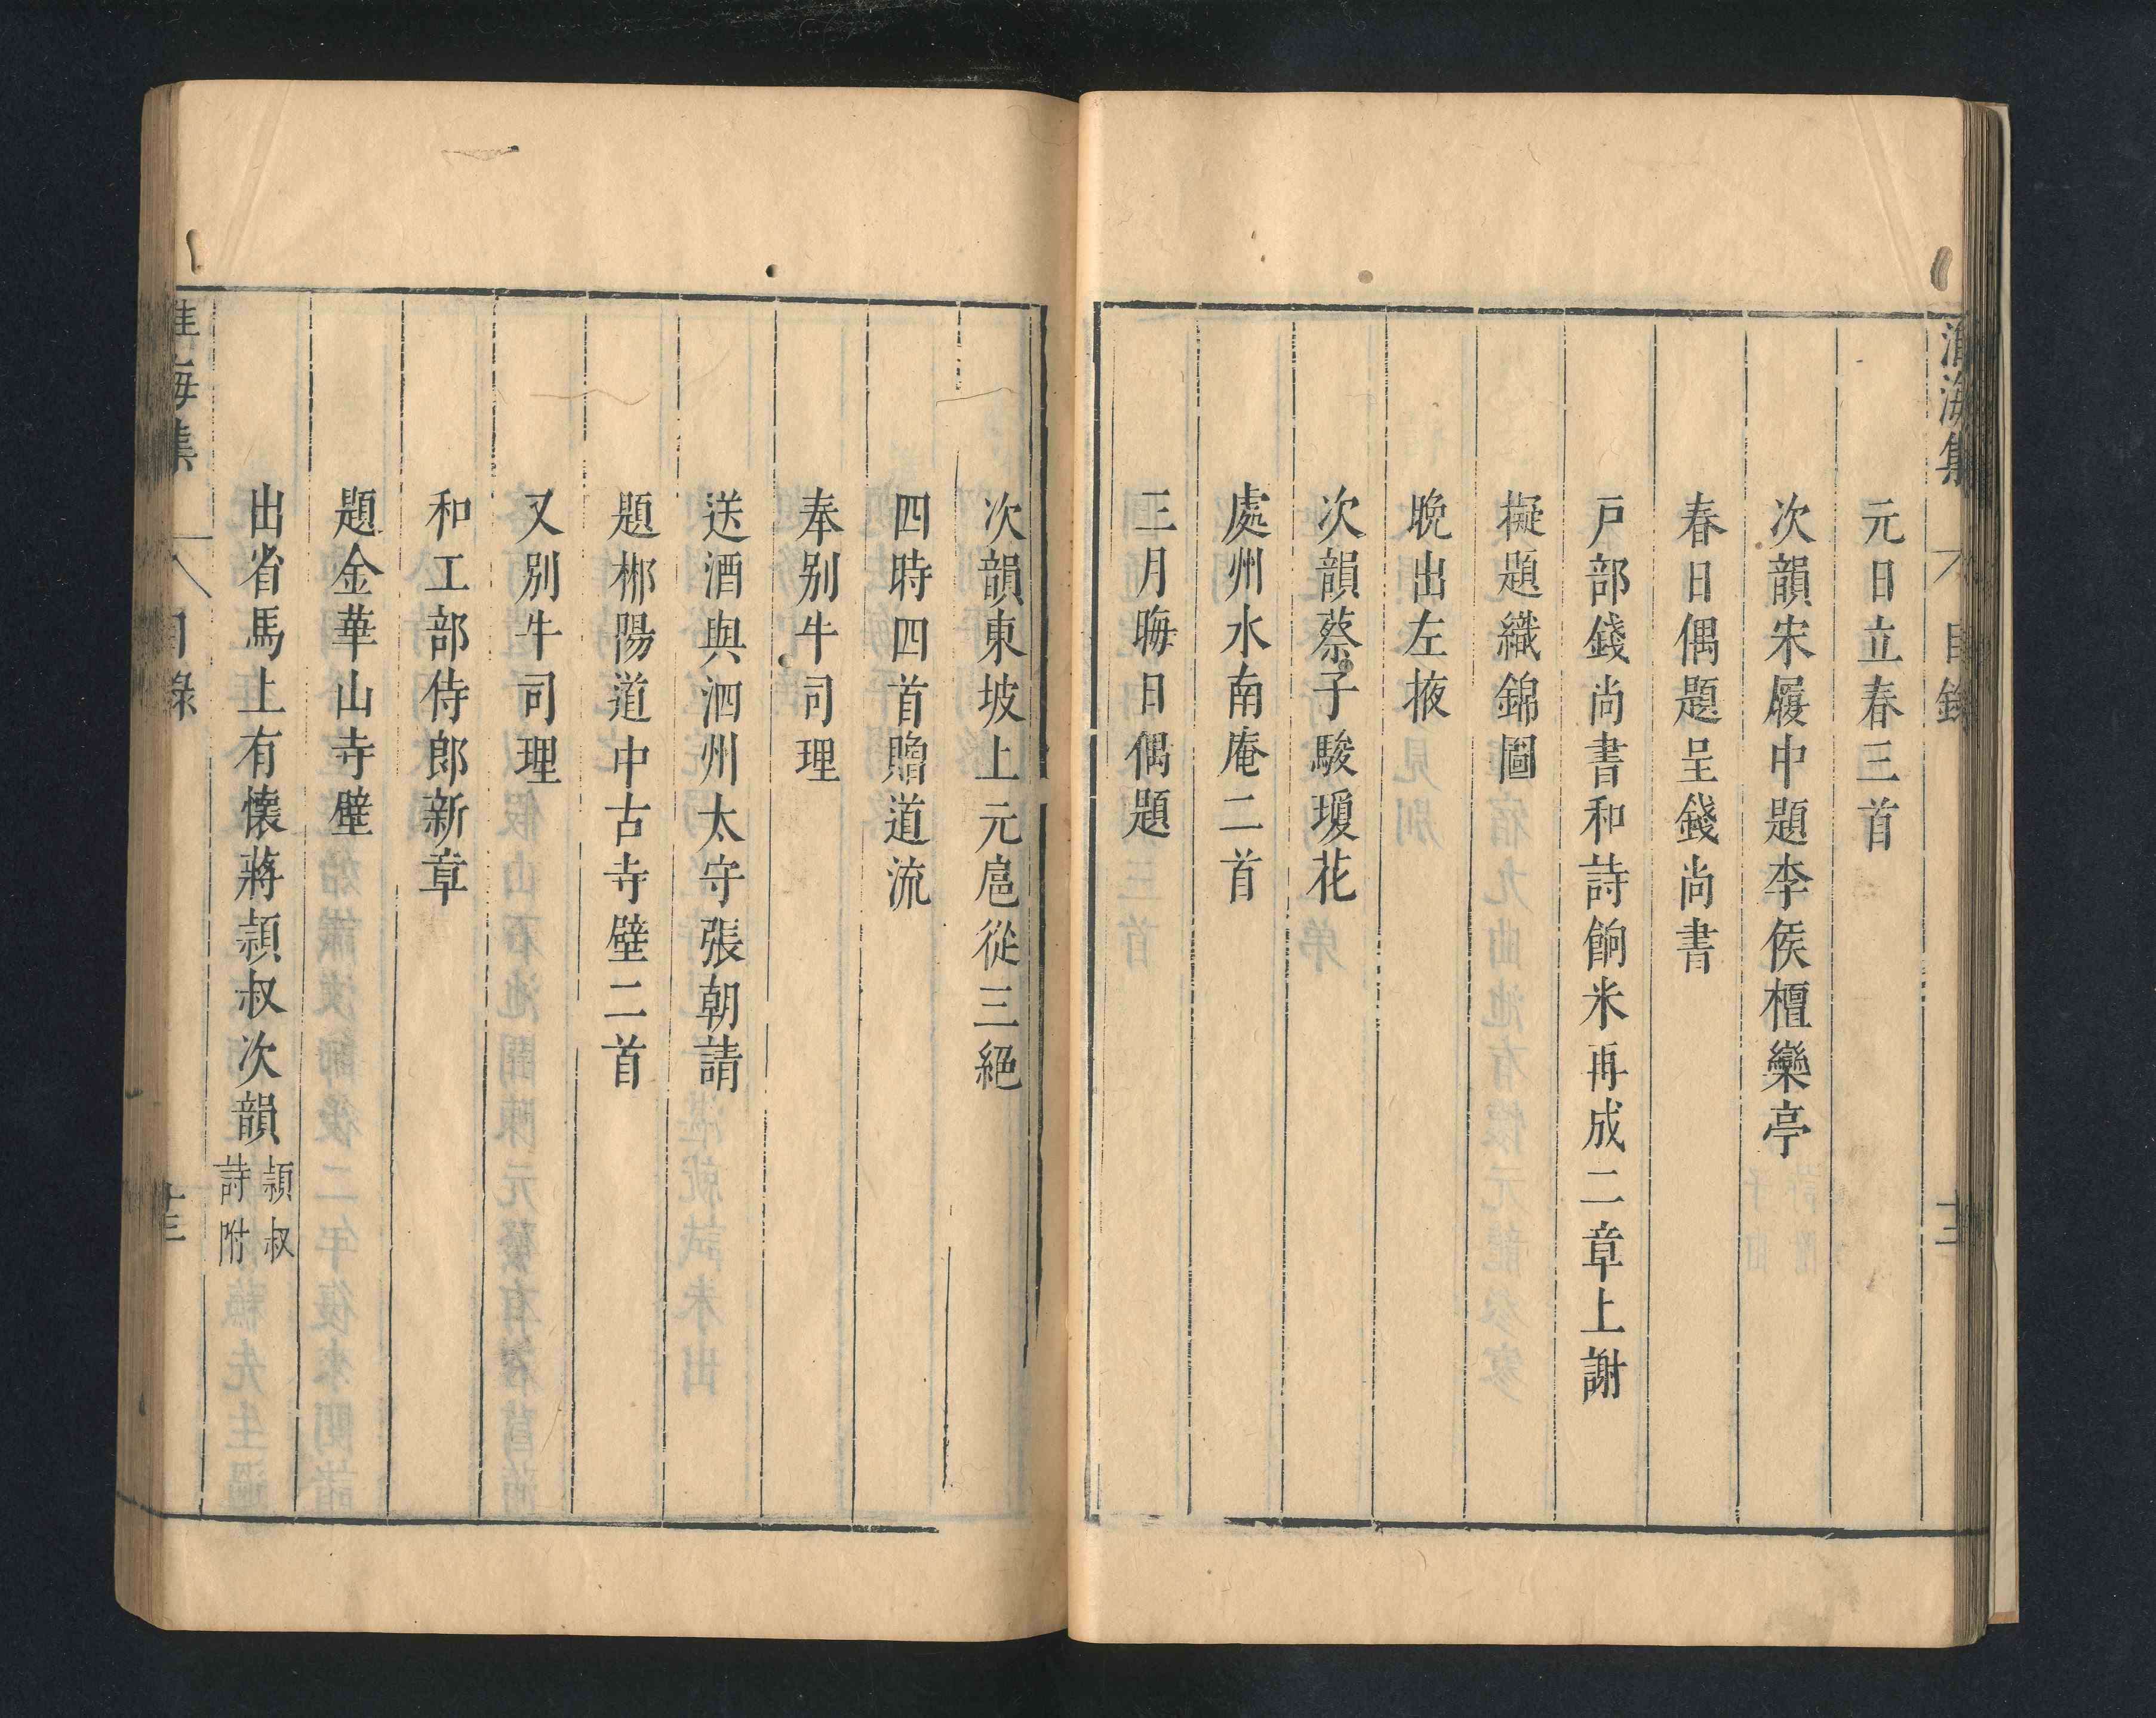 淮海集
目錄
元日立春三首
次韻宋履中題李侯檀欒亭
春日偶題呈錢尚書
戸部錢尚書和詩餉米再成二章上謝
擬題織錦圖
晩出左掖
次韻蔡子駿瓊花
處州水南庵二首
三月晦日偶題
次韻東坡上元扈從三絕
四時四首贈道流
奉别牛司理
送酒與泗州太守張朝請
題郴陽道中古寺壁二首
又別牛司理
和工部侍郎新章
題金華山寺壁
出省馬上有懷蔣穎叔次韻
穎叔
詩附
淮海集
目錄